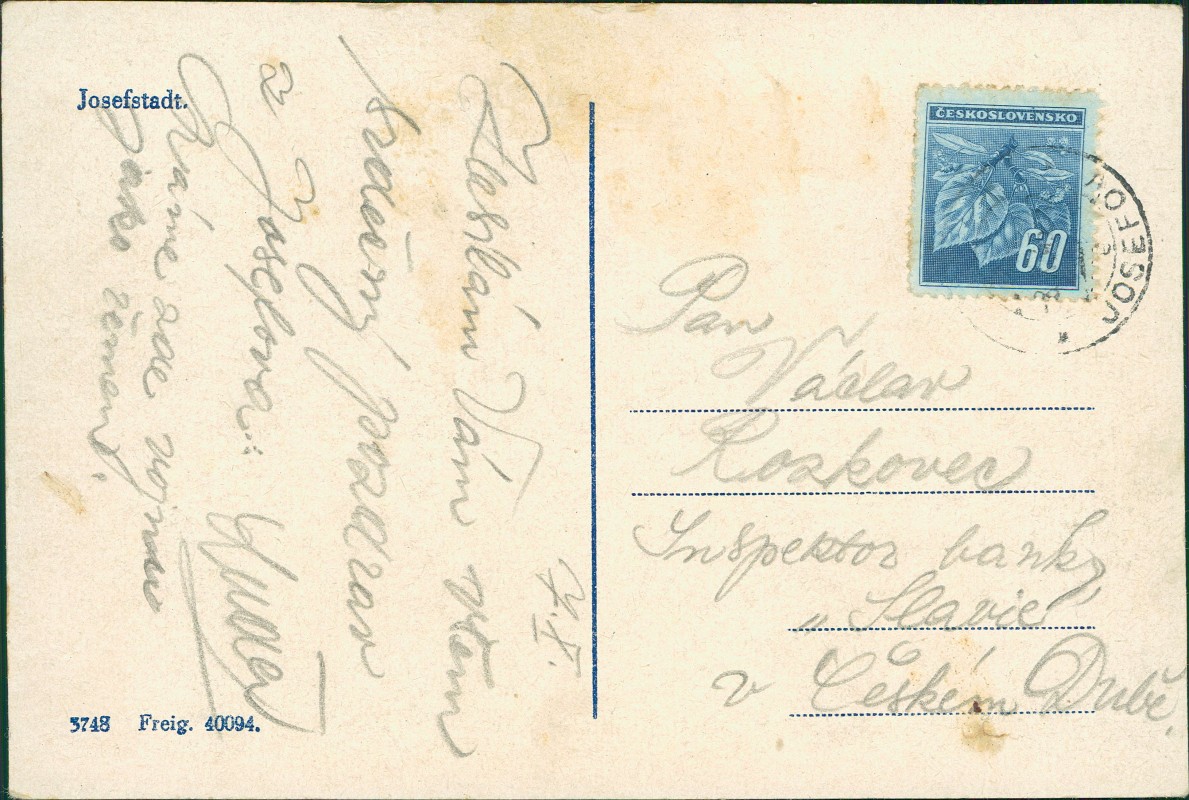 Josefstadt.
7.X.
Zasílám Vám všem
srdečný pozdrav
z Josefova.
Hráme zde vojnu
jako země.
3748 Freig. 40094.
ČESKOSLOVENSKO
60
JOSEFOV
Pan
Václav
Roskovec
Inspektor banky
„Slavie“
v Českém Dubě.